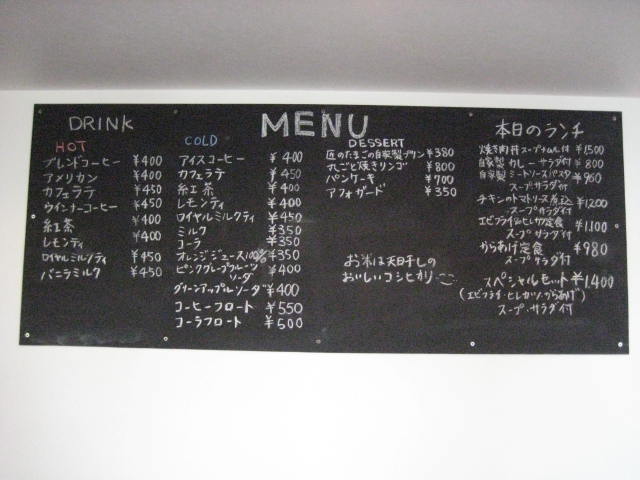 MENU
DRINK
HOT
ブレンドコーヒー ¥400
アメリカン ¥400
カフェラテ ¥450
ウインナーコーヒー ¥450
紅茶 ¥400
レモンティ
ロイヤルミルクティ ¥450
バニラミルク ¥450
COLD
アイスコーヒー ¥400
カフェラテ ¥450
紅茶 ¥400
レモンティ ¥400
ロイヤルミルクティ ¥450
ミルク ¥350
コーラ ¥350
オレンジジュース100% ¥350
ピンクグレープフルーツ ¥400
ソーダ
グリーンアップルソーダ ¥400
コーヒーフロート ¥550
コーラフロート ¥500
DESSERT
匠のたまごの自家製プリン ¥380
丸ごと焼きリンゴ ¥800
パンケーキ ¥700
アフォガード ¥350
お米は天日干しの
おいしいコシヒカリ
本日のランチ
焼き肉丼 付 ¥1500
自家製カレー サラダ付 ¥800
自家製ミートソースパスタ ¥960
スープサラダ付
チキンのトマトソース煮込 ¥1200
スープサラダ付
エビフライ 定食 ¥1,100
スープサラダ付
からあげ定食 ¥980
スープサラダ付
スペシャルセット ¥1,400
(エビフライ・ヒレカツ・からあげ)
スープ・サラダ付